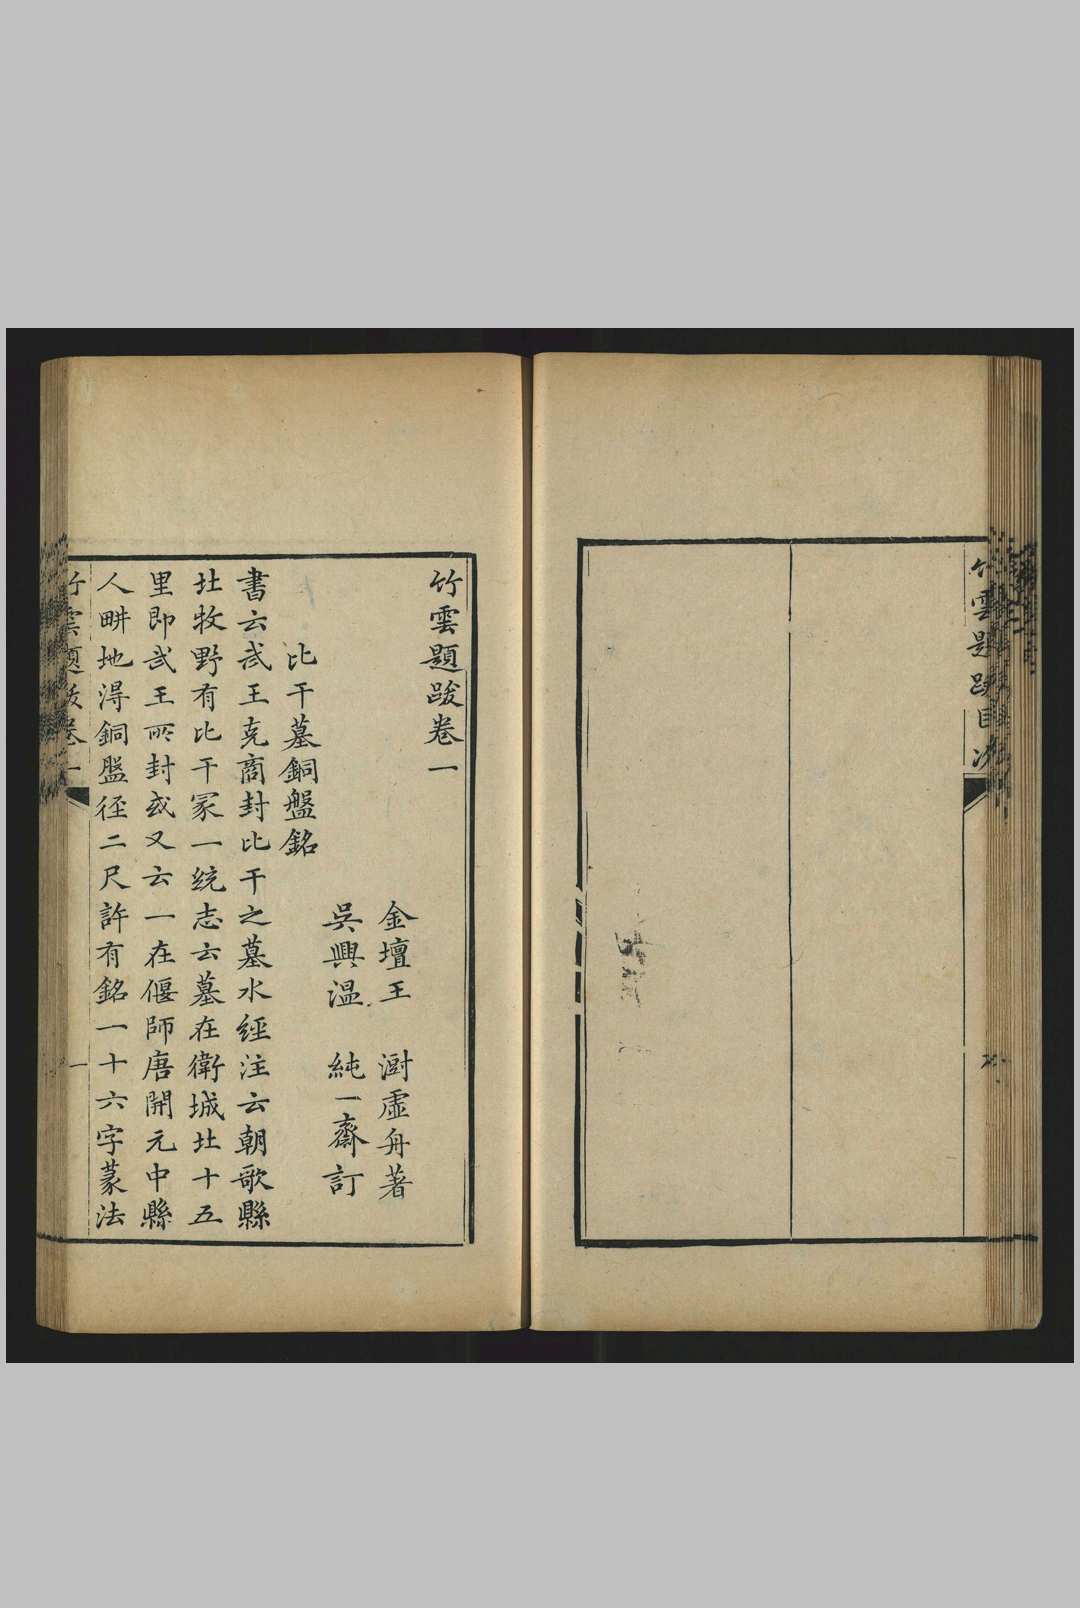 竹雲題跋目次
竹雲題跋卷一
金壇王　澍虛舟著
吳興溫　純一齋訂
比干墓銅盤銘
書云武王克商封比干之墓水經注云朝歌縣
北牧野有比干冢一統志云墓在衛城北十五
里即武王所封或又云一在偃師唐開元中縣
人畊地得銅盤徑二尺許有銘一十六字篆法
竹雲題跋卷一
一